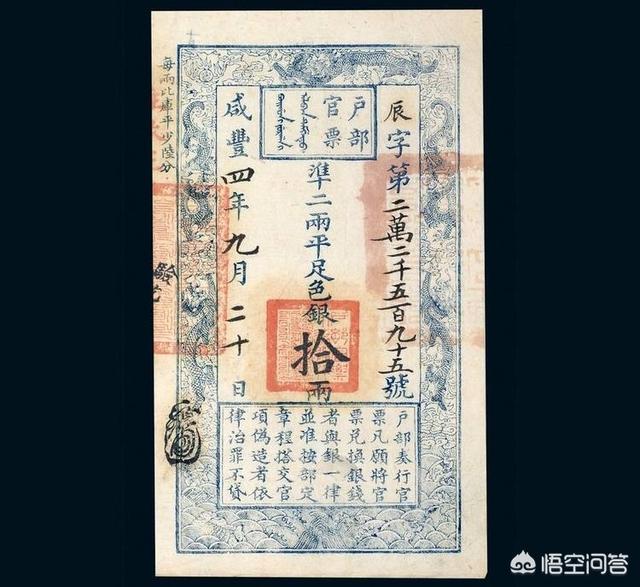 户部
官票
辰字第二萬二千五百九十五號
準二兩平足色銀拾兩
咸豐四年九月二十日
每兩比庫平少陸分
户部奏行官
票凡願將官
票兑換銀錢
者與銀一律
並准按部定
章程搭交官
項偽造者依
律治罪不貸
悟空问答